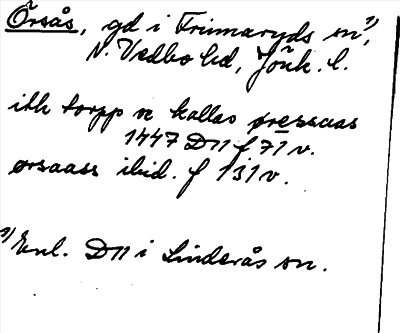 Örsås, gd i Frinnaryds sn¹⁾,
N. Vedbo hd, Jönk. l.
ith torpp sc kallas øressaas
1447 D11 f 71 v.
ørsaass ibid. f 131 v.
¹⁾ Enl. D11 i Linderås sn.